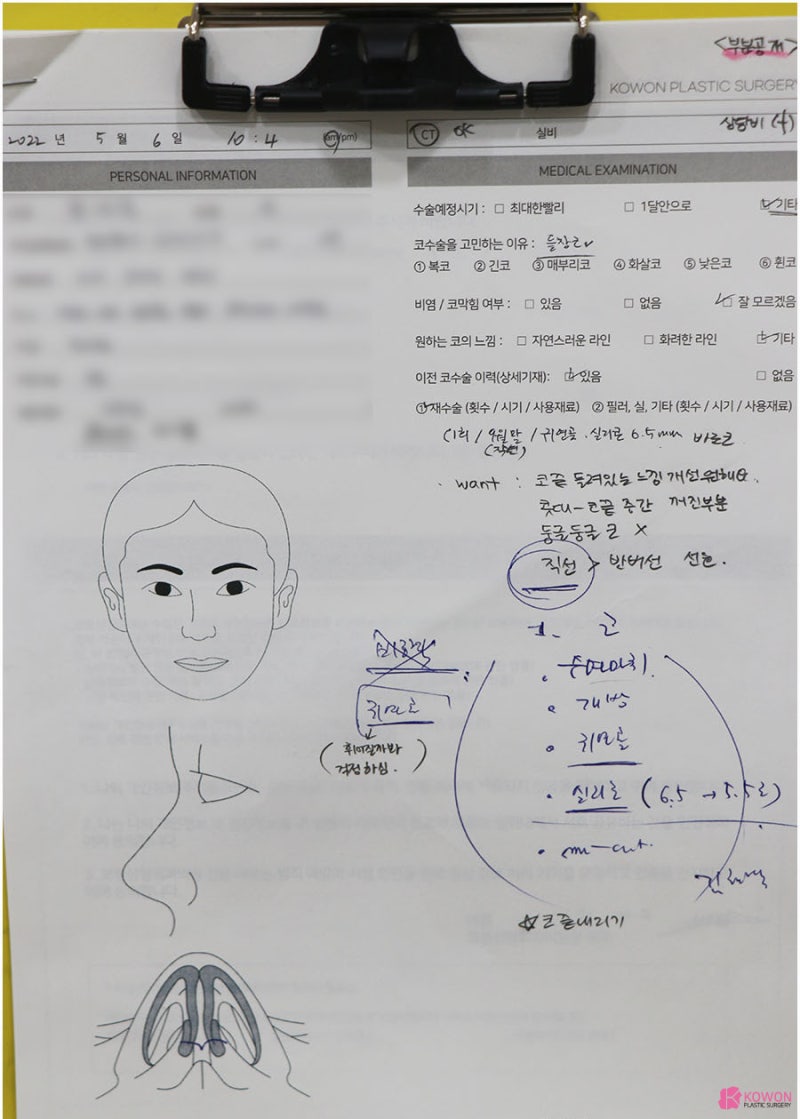 <부분공개>
KOWON PLASTIC SURGERY
2022 년 5 월 6 일 10 : 4 (am/pm)
CT OK 실비 상담비 (+)
PERSONAL INFORMATION
MEDICAL EXAMINATION
수술예정시기 : □ 최대한빨리 □ 1달안으로 ☑ 기타
코수술을 고민하는 이유 : 들창코
① 복코 ② 긴코 ③ 매부리코 ④ 화살코 ⑤ 낮은코 ⑥ 휜코
비염 / 코막힘 여부 : □ 있음 □ 없음 ☑ 잘 모르겠음
원하는 코의 느낌 : □ 자연스러운 라인 □ 화려한 라인 ☑ 기타
이전 코수술 이력(상세기재): ☑ 있음 □ 없음
① 재수술 (횟수 / 시기 / 사용재료) ② 필러, 실, 기타 (횟수 / 시기 / 사용재료)
(1회 / 9월말 / 귀연골. 실리콘 6.5mm 바르코
(작년)
· want : 코끝 들려있는 느낌 개선원해요.
콧대-코끝 중간 꺼진부분
둥글둥글 코 X
직선 > 반버선 선호.
코
· 개방
귀연골
· 귀연골
(휘어질까봐
걱정하심.)
· 실리콘 (6.5 → 5.5로)
☆코끝내리기
KOWON
PLASTIC SURGERY